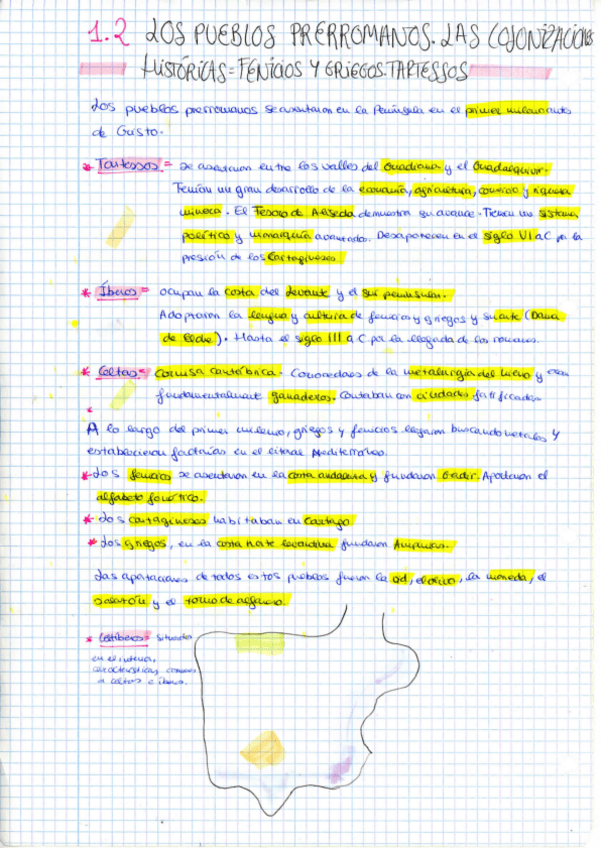 1.2 LOS PUEBLOS PRERROMANOS. LAS COLONIZACIONES
HISTÓRICAS = FENICIOS Y GRIEGOS. TARTESSOS
Los pueblos prerromanos se asentaron en la Península en el primer milenio antes
de Cristo.
* Tartessos = se asentaron entre los valles del Guadiana y el Guadalquivir.
Tenían un gran desarrollo de la economía, agricultura, comercio y riqueza
minera. El Tesoro de Aliseda demuestra su avance. Tienen un sistema
político y monarquía avanzados. Desaparecen en el siglo VI a.C por la
presión de los Cartagineses.
* Íberos = ocupan la costa del levante y el sur peninsular.
Adoptaron la lengua y cultura de fenicios y griegos y su arte (Dama
de Elche). Hasta el siglo III a.C por la llegada de los romanos.
* Celtas = Cornisa cantábrica. Conocedores de la metalurgia del hierro y eran
fundamentalmente ganaderos. Contaban con ciudades fortificadas.
A lo largo del primer milenio, griegos y fenicios llegaron buscando metales y
establecieron factorías en el litoral Mediterráneo.
* Los fenicios se asentaron en la costa andaluza y fundaron Gadir. Aportaron el
alfabeto fonético.
* Los cartagineses habitaban en Cartago
* Los griegos, en la costa norte levantina fundaron Ampurias.
Las aportaciones de todos estos pueblos fueron la vid, el olivo, la moneda, el
salazón y el torno de alfarero.
* Celtíberos = situados
en el interior,
características comunes
a celtas e íberos.